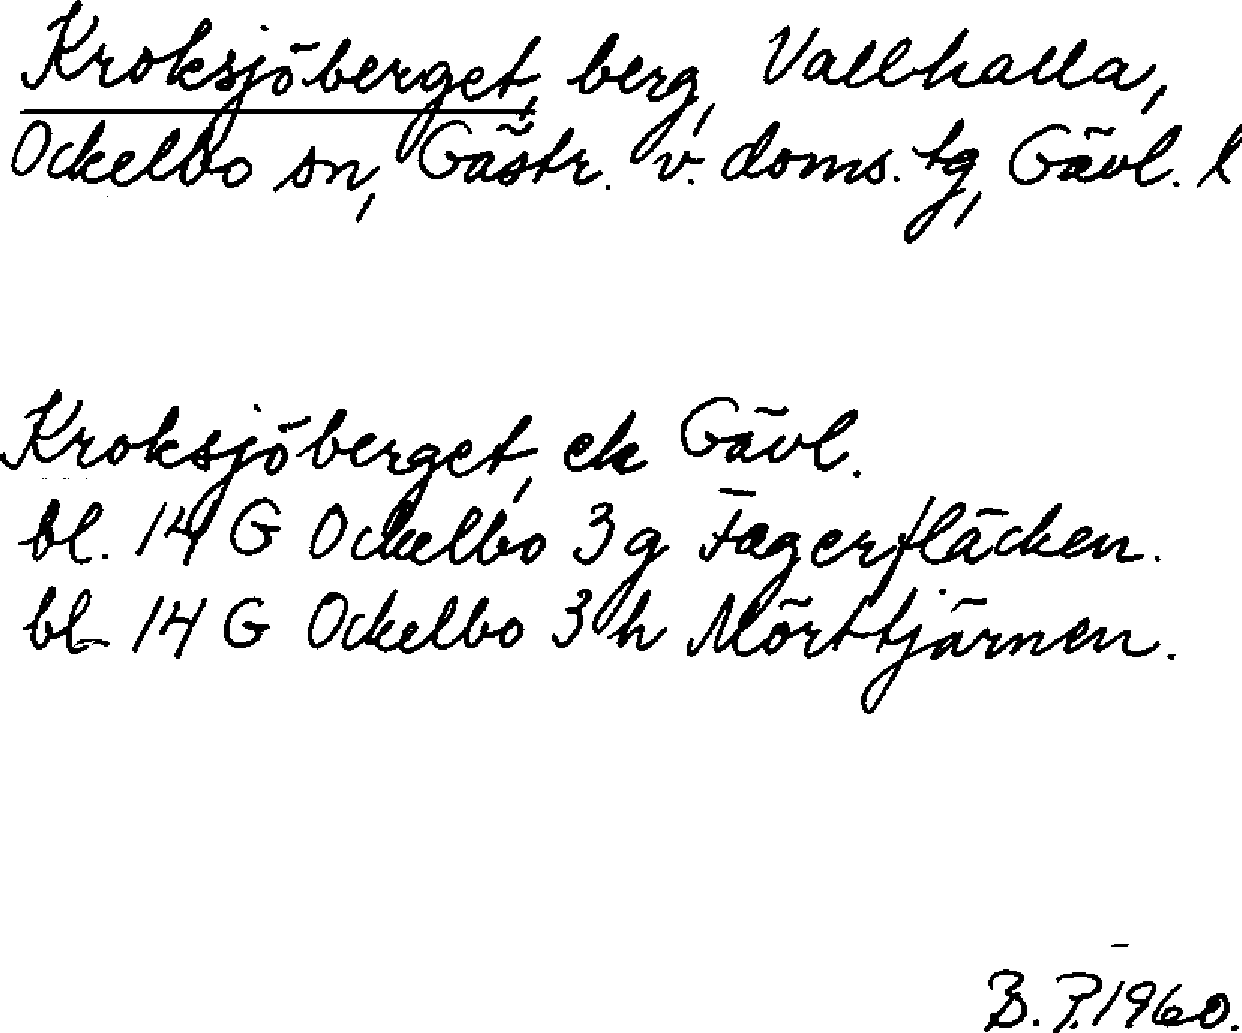 Kroksjöberget, berg, Vallhalla,
Ockelbo sn, Gästr. v. doms. tg, Gävl. l
Kroksjöberget, ek Gävl.
bl. 14 G Ockelbo 3 g Fagerfläcken.
bl. 14 G Ockelbo 3 h Mörttjärnen.
B. P. 1960.